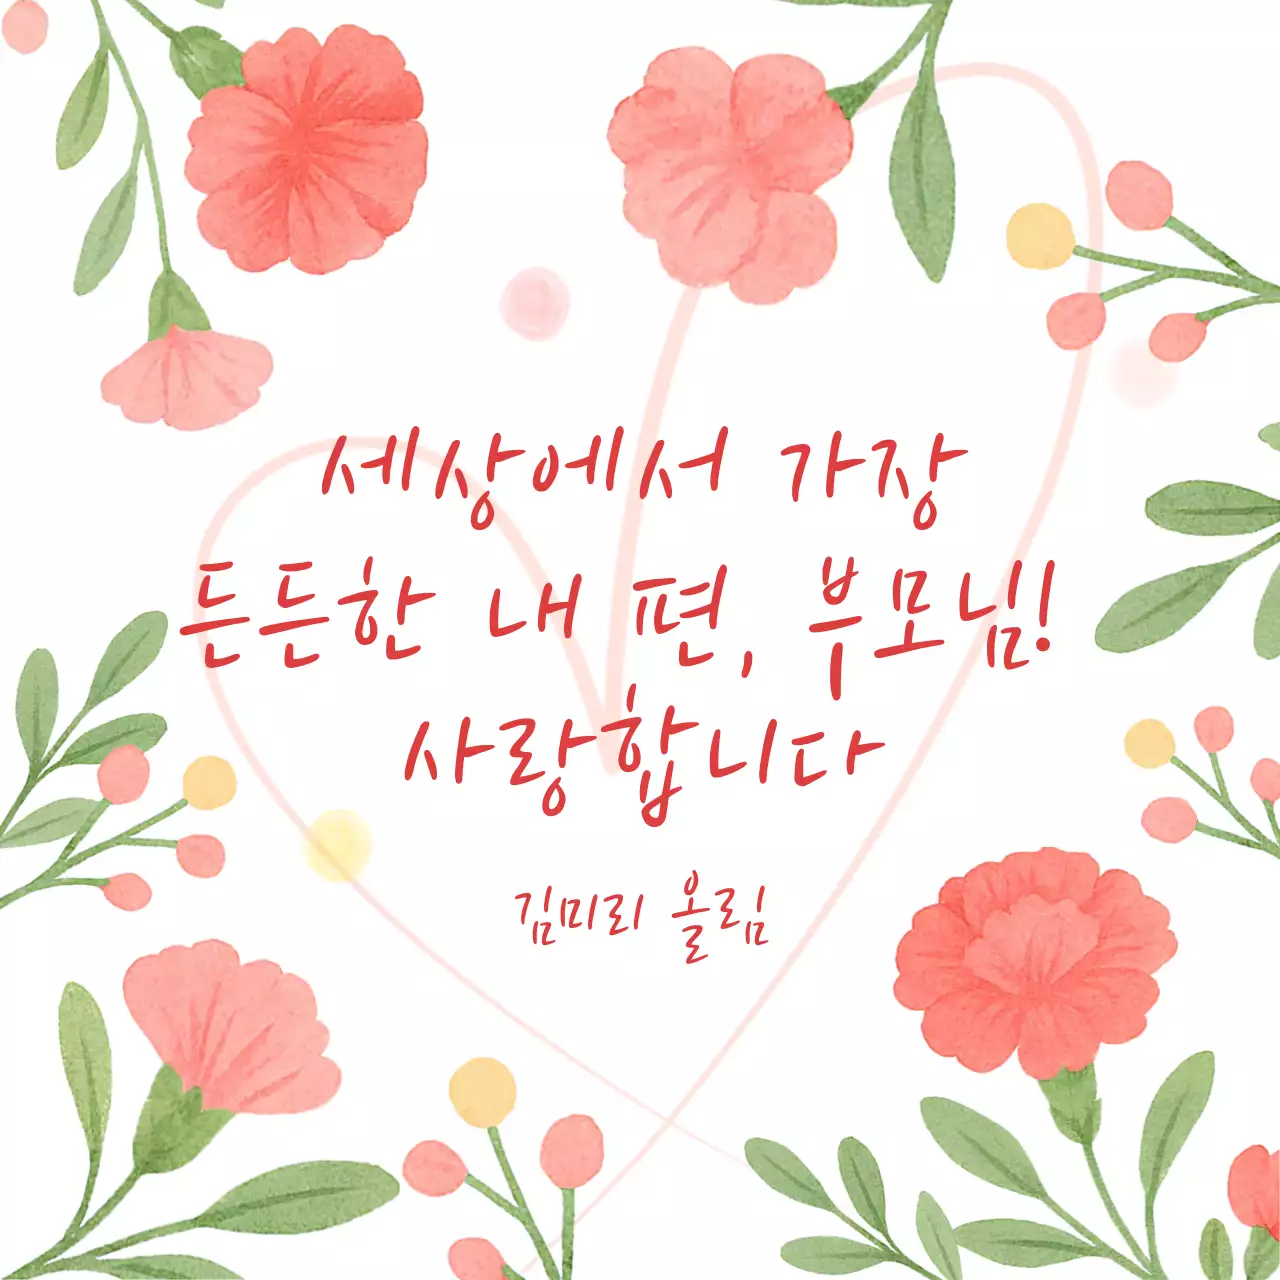 세상에서 가장
든든한 내 편, 부모님!
사랑합니다
김미리 올림